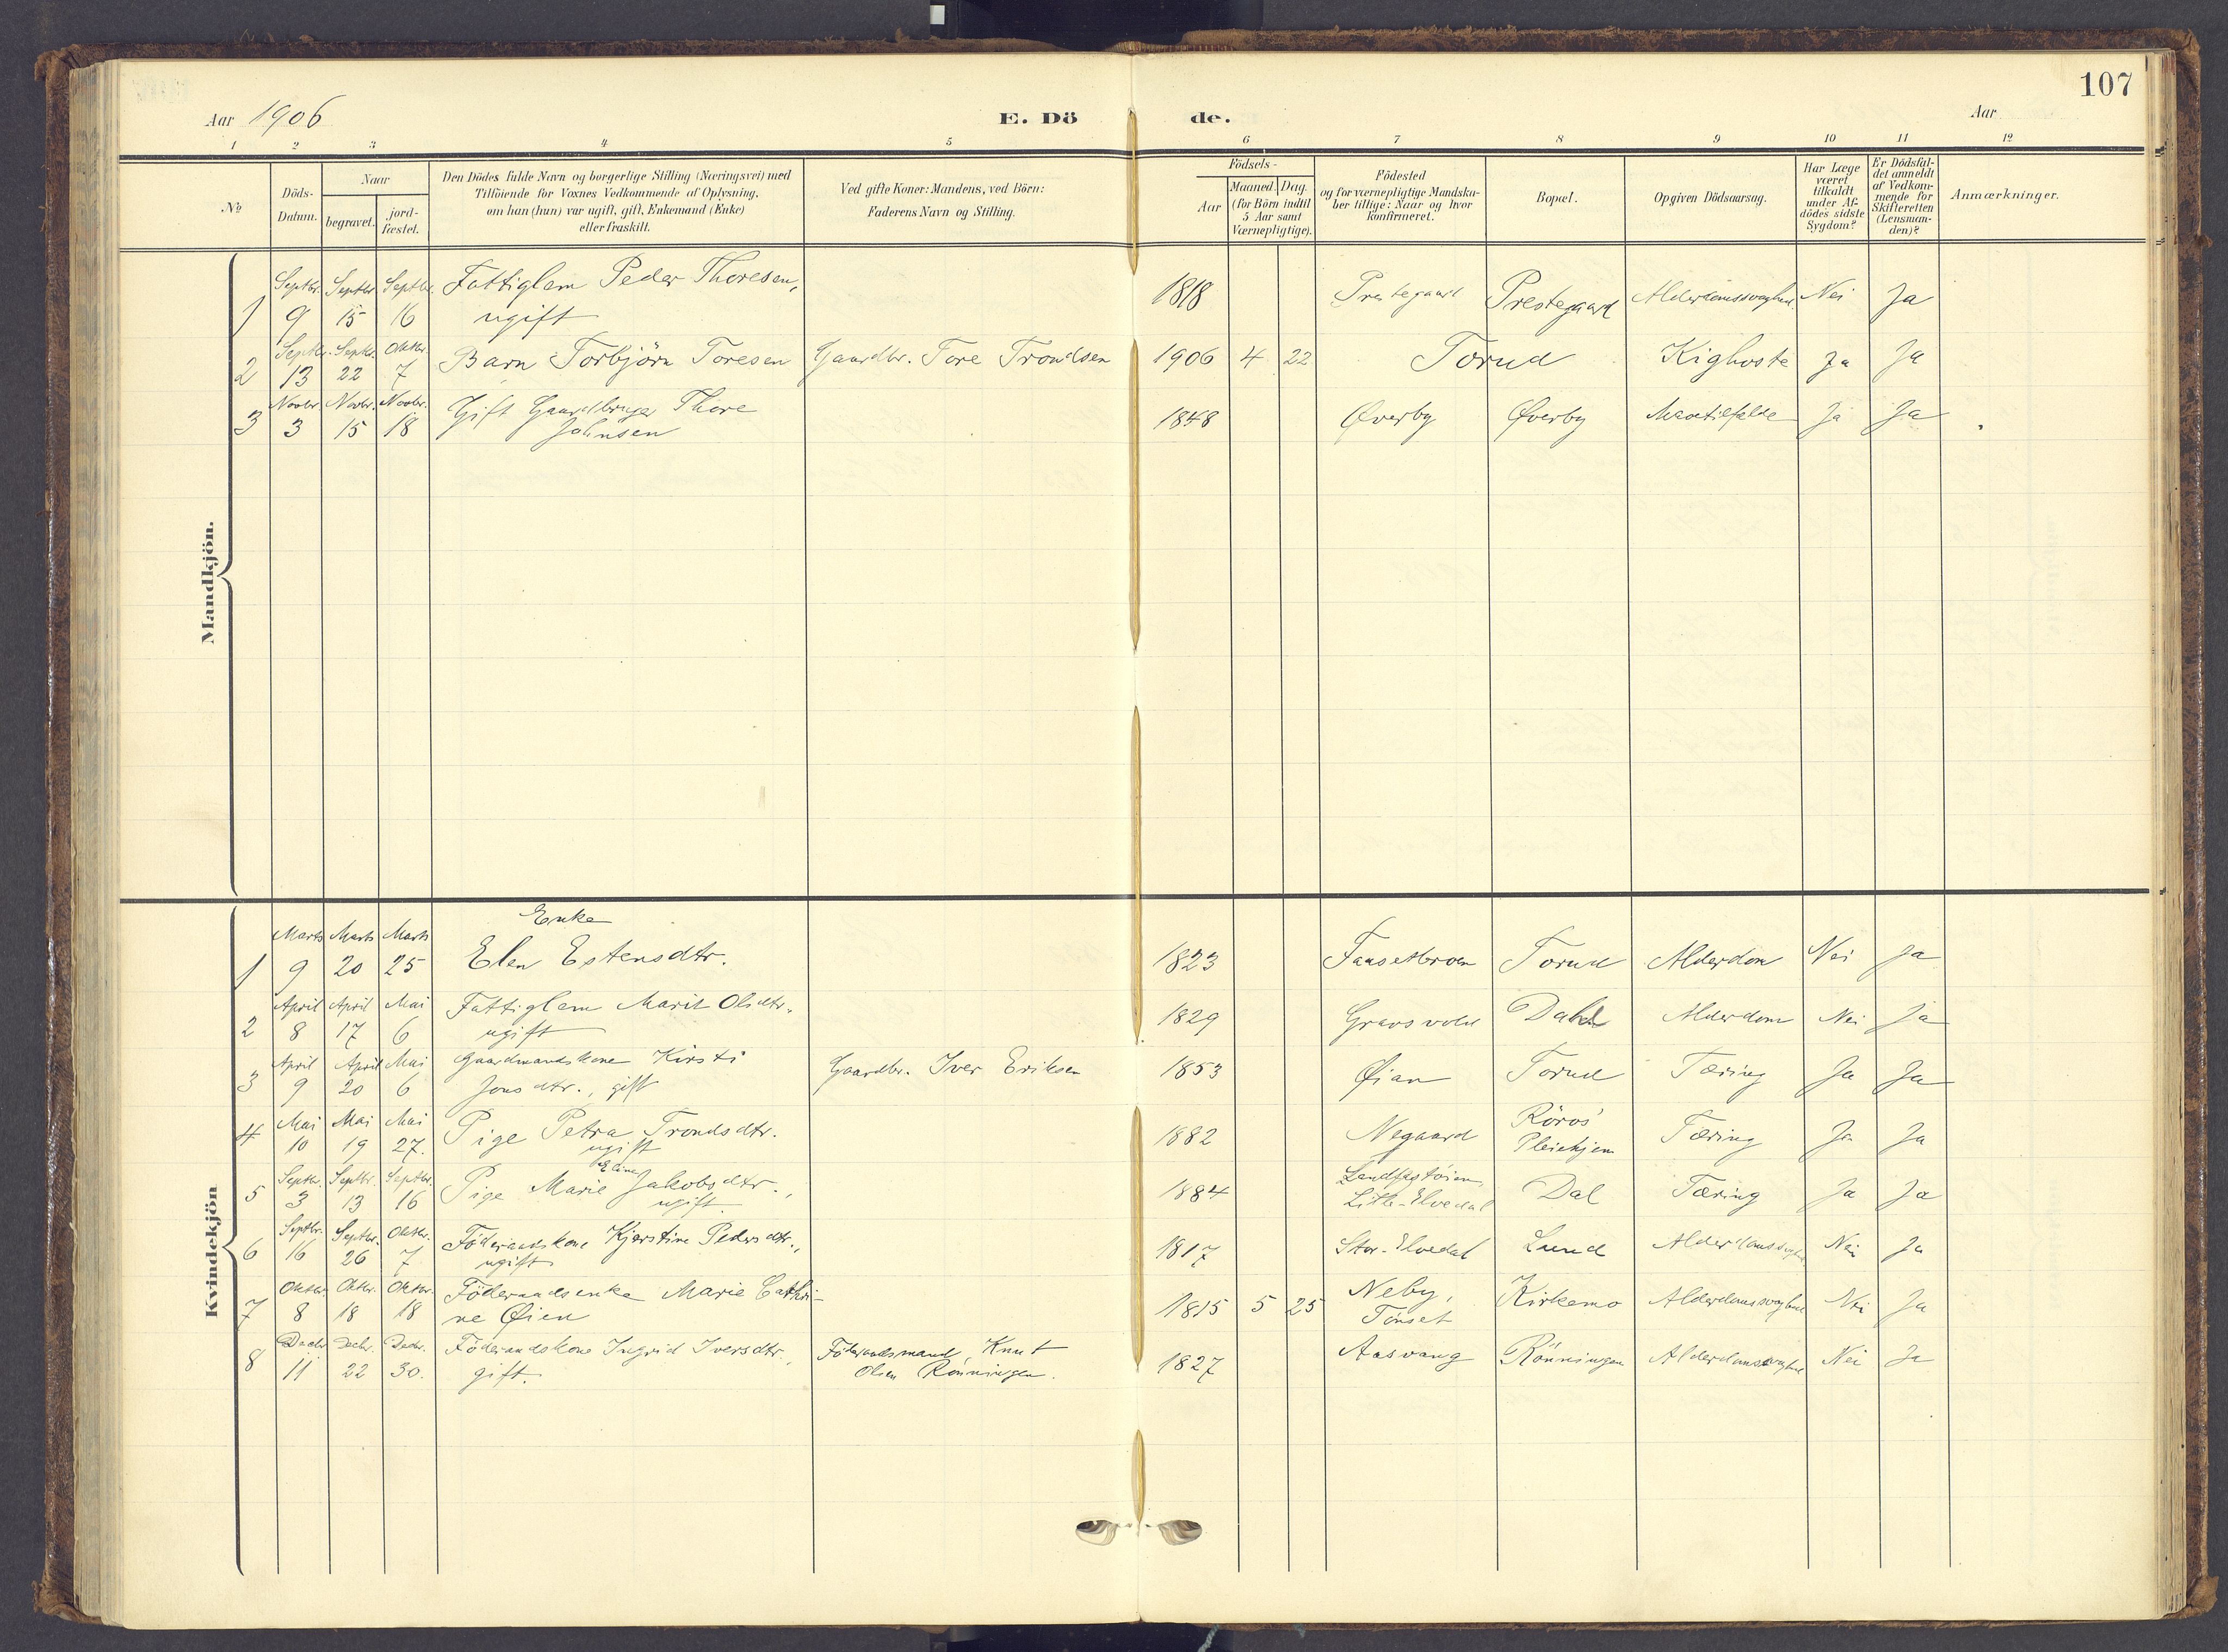 107
Aar 1906 E. Dö de. Aar
1 2 3 4 5 6 7 8 9 10 11 12
No
Döds-Datum.
Naar
begravet.
jord-fæstet.
Den Dödes fulde Navn og borgerlige Stilling (Næringsvei) med
Tilföiende for Voxnes Vedkommende af Oplysning,
om han (hun) var ugift, gift, Enkemand (Enke)
eller fraskilt.
Ved gifte Koner: Mandens, ved Börn:
Faderens Navn og Stilling.
Födsels-
Aar
Maaned. Dag.
(for Börn indtil
5 Aar samt
Værnepligtige).
Födested
og for værnepligtige Mandska-
ber tillige: Naar og hvor
konfirmeret.
Bopæl.
Opgiven Dödsaarsag.
Har Læge
været
tilkaldt
under Af-
dödes sidste
Sygdom?
Er Dödsfal-
det anmeldt
af Vedkom-
mende for
Skifteretten
(Lensman-
den)?
Anmærkninger.
Mandkjön.
Septbr. Septbr. Septbr. Fattiglem Peder Thoresen,
1 9 15 16 ugift 1818 Prestegaard Prestegaard Alderdomssvaghed Nei Ja
Septbr. Septbr. Oktbr.
2 13 22 7 Barn Torbjörn Toresen Gaardbr. Tore Trondsen 1906 4 22 Torud Kighoste Ja Ja
Novbr. Novbr. Novbr. Gift Gaardbruger Thore
3 3 15 18 Johnsen 1848 Øverby Øverby Ja Ja
Kvindekjön
Enke
Marts Marts Marts
1 9 20 25 Elen Estensdtr. 1823 Fausetbroen Torud Alderdom Nei Ja
April April Mai Fattiglem Marit Olsdtr.
2 8 17 6 ugift 1829 Grausvold Dahl Alderdom Nei Ja
April April Mai Gaardmandskone Kirsti
3 9 20 6 Jonsdtr., gift Gaardbr. Iver Eriksen 1853 Øian Torud Tæring Ja Ja
Mai Mai Mai Röros
4 10 19 27. Pige Petra Trondsdtr. 1882 Negaard Pleiehjem Tæring Ja Ja
ugift
Septbr. Septbr. Septbr. Eline Landfastöien,
5 3 13 16 Pige Marie Jakobsdtr., 1884 Litle-Elvedal Dal Tæring Ja Ja
ugift.
Septbr. Septbr. Oktbr. Föderaadskone Kjerstine Pedersdtr.,
6 16 26 7 ugift 1817 Stor-Elvedal Lund Alderdomssvaghed Nei Ja
Oktbr. Oktbr. Oktbr. Föderaadsenke Marie Cathri- Neby,
7 8 18 18 ne Øien 1815 5 25 Tönset Kirkemo Alderdomssvaghed Nei Ja
Decbr. Decbr. Decbr. Föderaadskone Ingrid Iversdtr., Föderaadsmand Knut
8 11 22 30. gift. Olsen Rönningen. 1827 Aasvang Rönningen Alderdomssvaghed Nei Ja